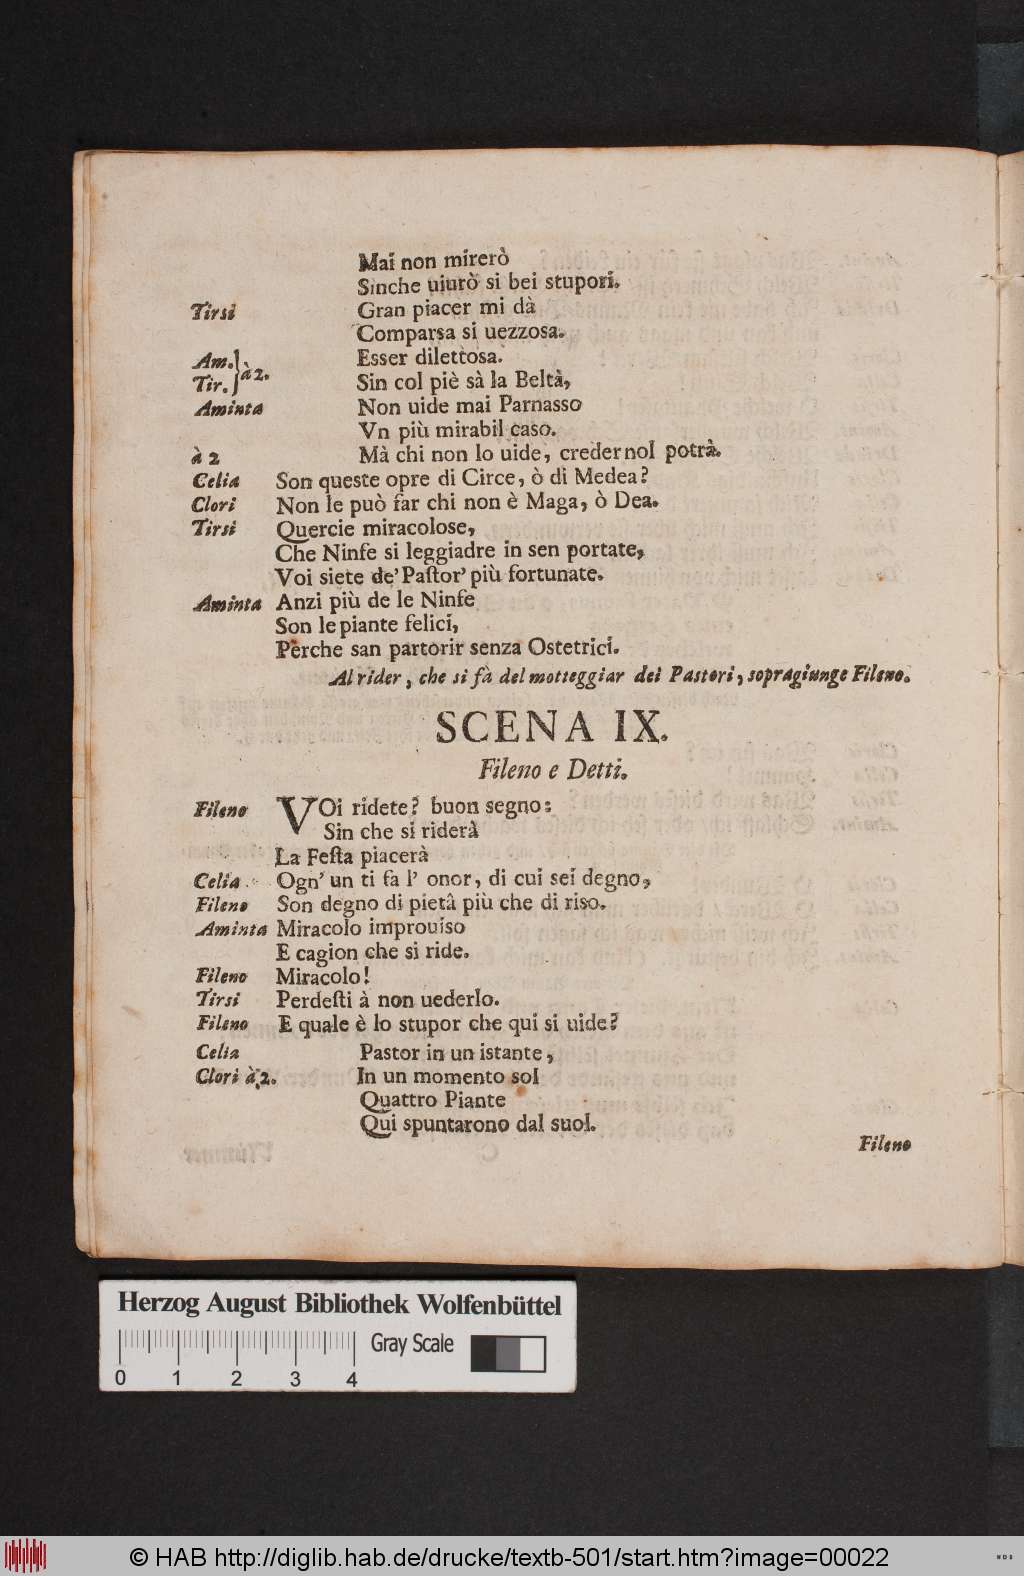 Mai non mirerò
Sinche uiurò si bei stupori.
Tirsi Gran piacer mi dà
Comparsa si uezzosa.
Am. Esser dilettosa.
Tir. à 2. Sin col piè sà la Beltà,
Aminta Non uide mai Parnasso
Vn più mirabil caso.
à 2 Mà chi non lo uide, creder nol potrà.
Celia Son queste opre di Circe, ò di Medea?
Clori Non le può far chi non è Maga, ò Dea.
Tirsi Quercie miracolose,
Che Ninfe si leggiadre in sen portate,
Voi siete de' Pastor' più fortunate.
Aminta Anzi più de le Ninfe
Son le piante felici,
Perche san partorir senza Ostetrici.
Al rider, che si fà del motteggiar dei Pastori, sopragiunge Fileno.
SCENA IX.
Fileno e Detti.
Fileno VOi ridete? buon segno:
Sin che si riderà
La Festa piacerà
Celia Ogn' un ti fa l' onor, di cui sei degno,
Fileno Son degno di pietà più che di riso.
Aminta Miracolo improuiso
E cagion che si ride.
Fileno Miracolo!
Tirsi Perdesti à non uederlo.
Fileno E quale è lo stupor che qui si uide?
Celia Pastor in un istante,
Clori à 2. In un momento sol
Quattro Piante
Qui spuntarono dal suol.
Fileno
Herzog August Bibliothek Wolfenbüttel
Gray Scale
0 1 2 3 4
© HAB http://diglib.hab.de/drucke/textb-501/start.htm?image=00022